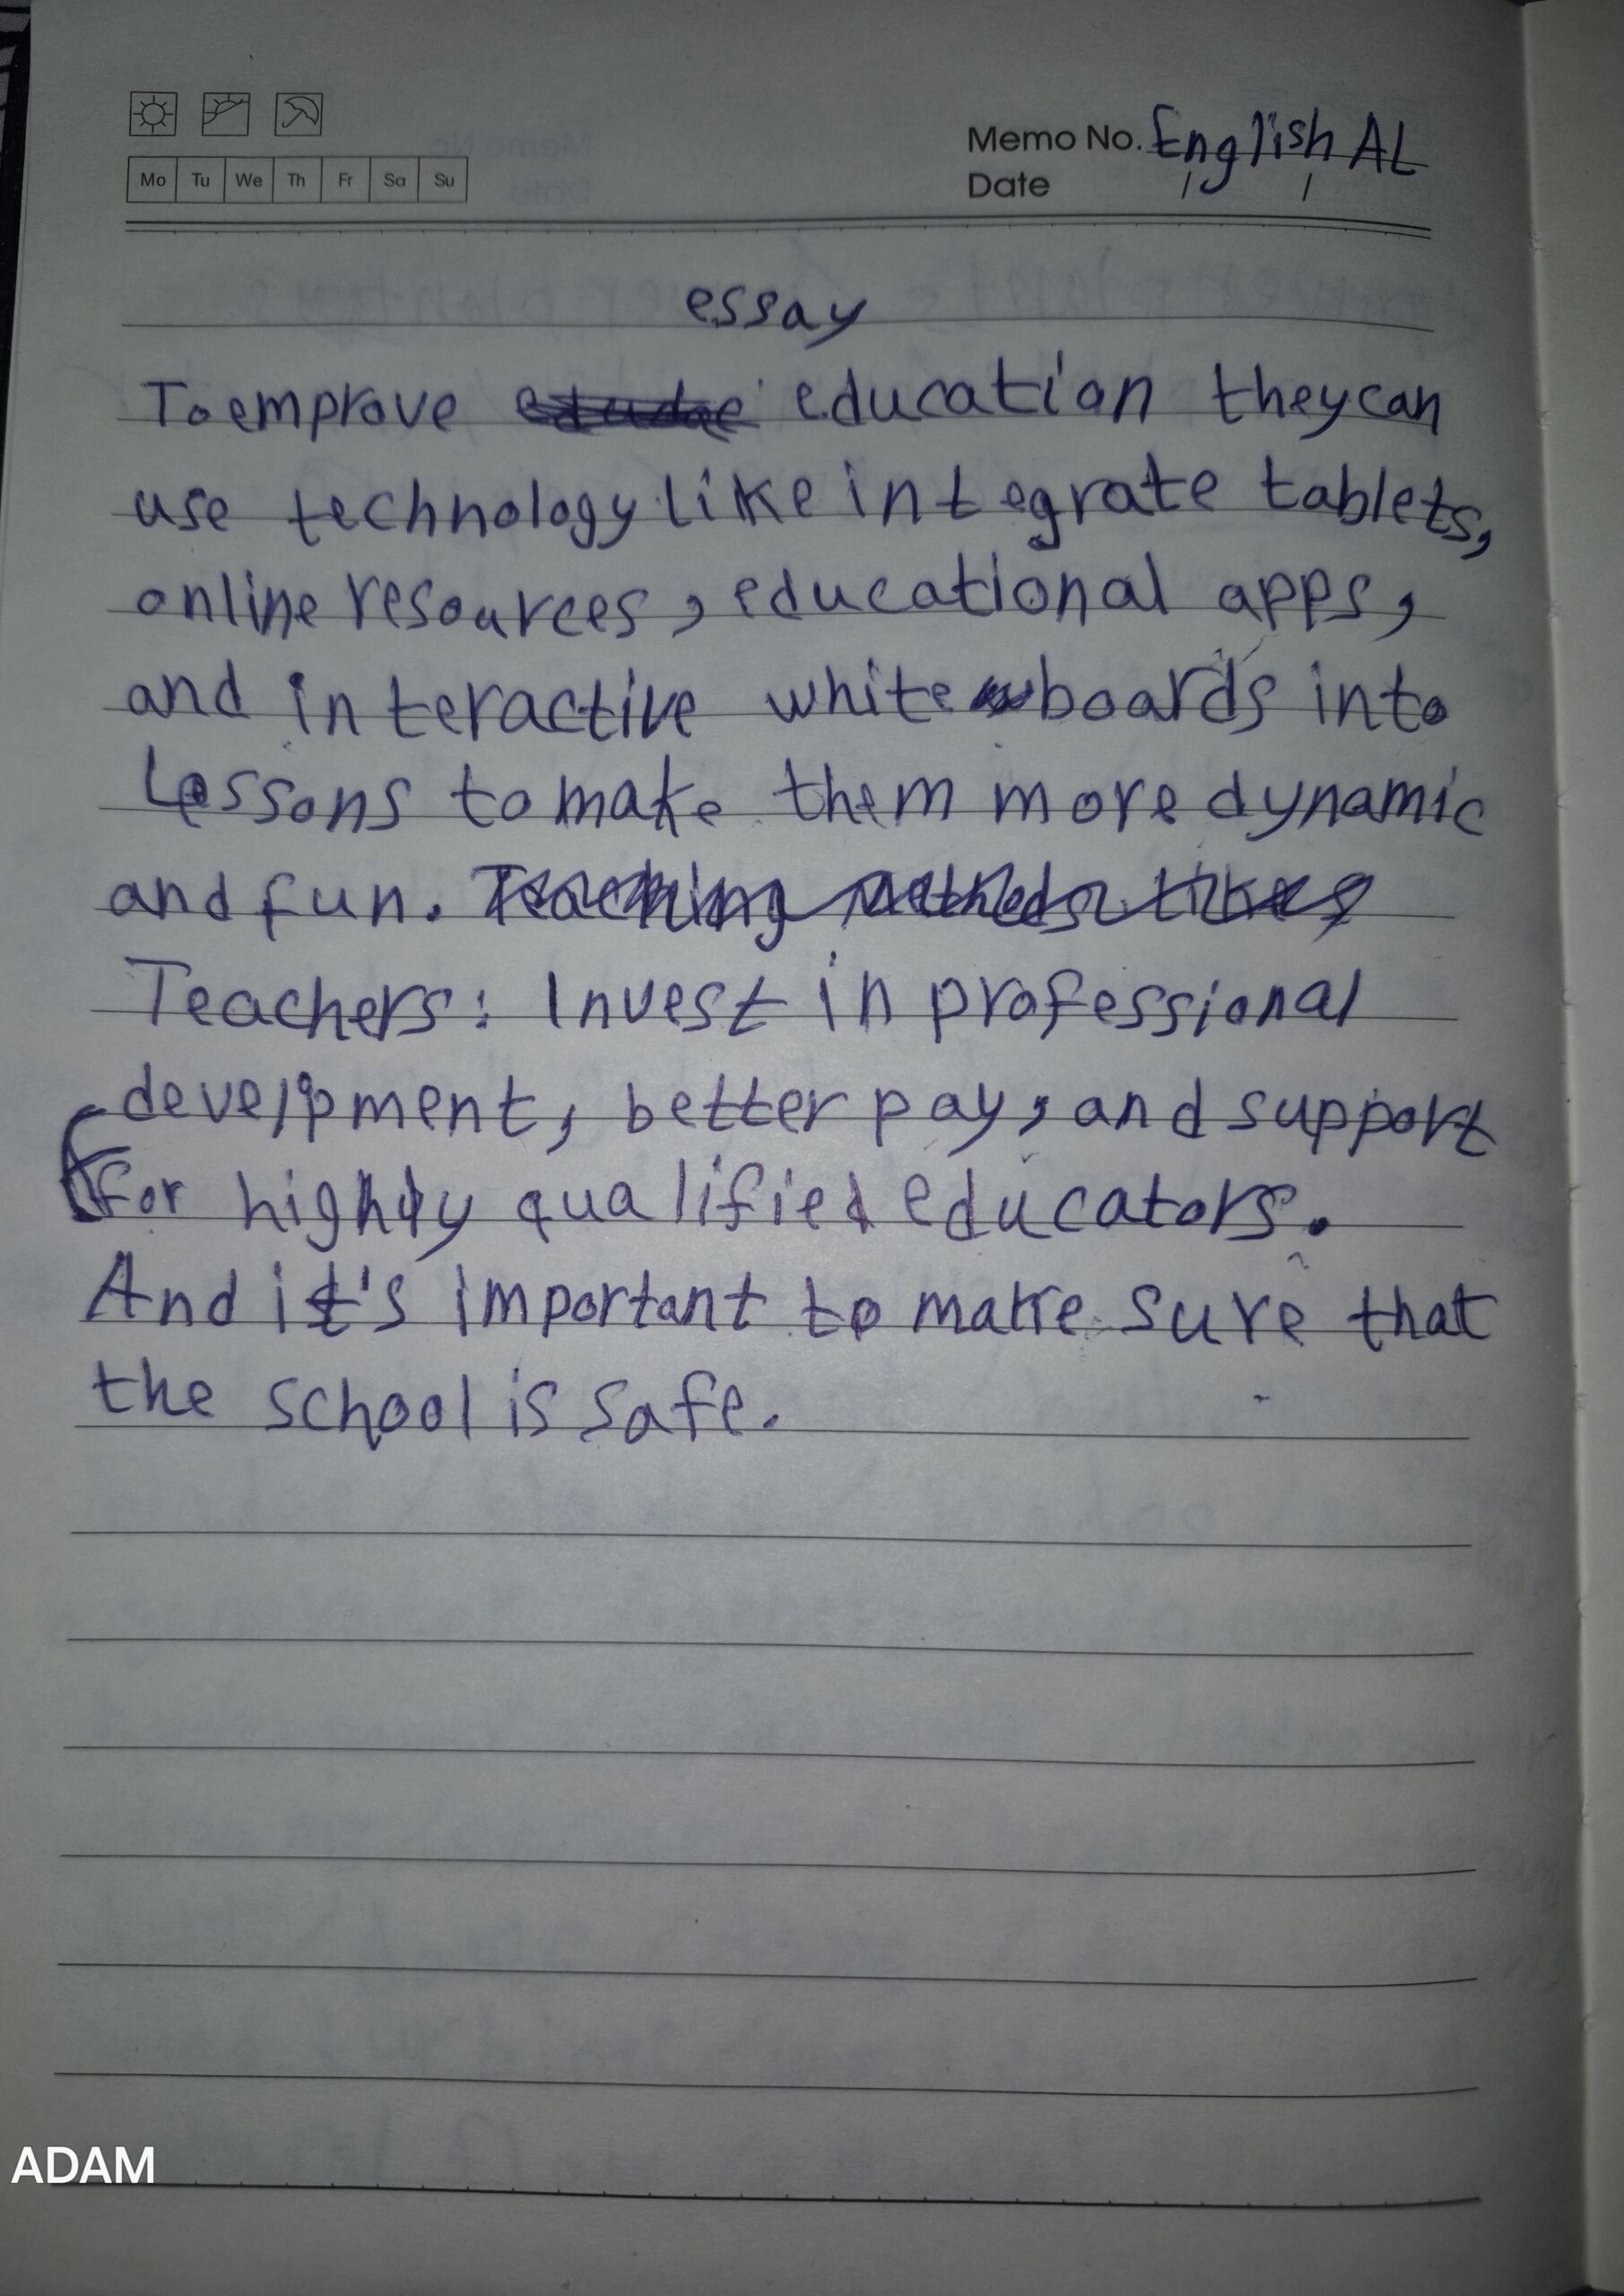 Memo No. English AL
Mo Tu We Th Fr Sa Su
Date / /
essay
To emprove education they can
use technology like integrate tablets,
online resources, educational apps,
and interactive white boards into
Lessons to make them more dynamic
and fun.
Teachers: Invest in professional
develpment, better pay, and support
for highly qualified educators.
And it's important to make sure that
the school is safe.
ADAM